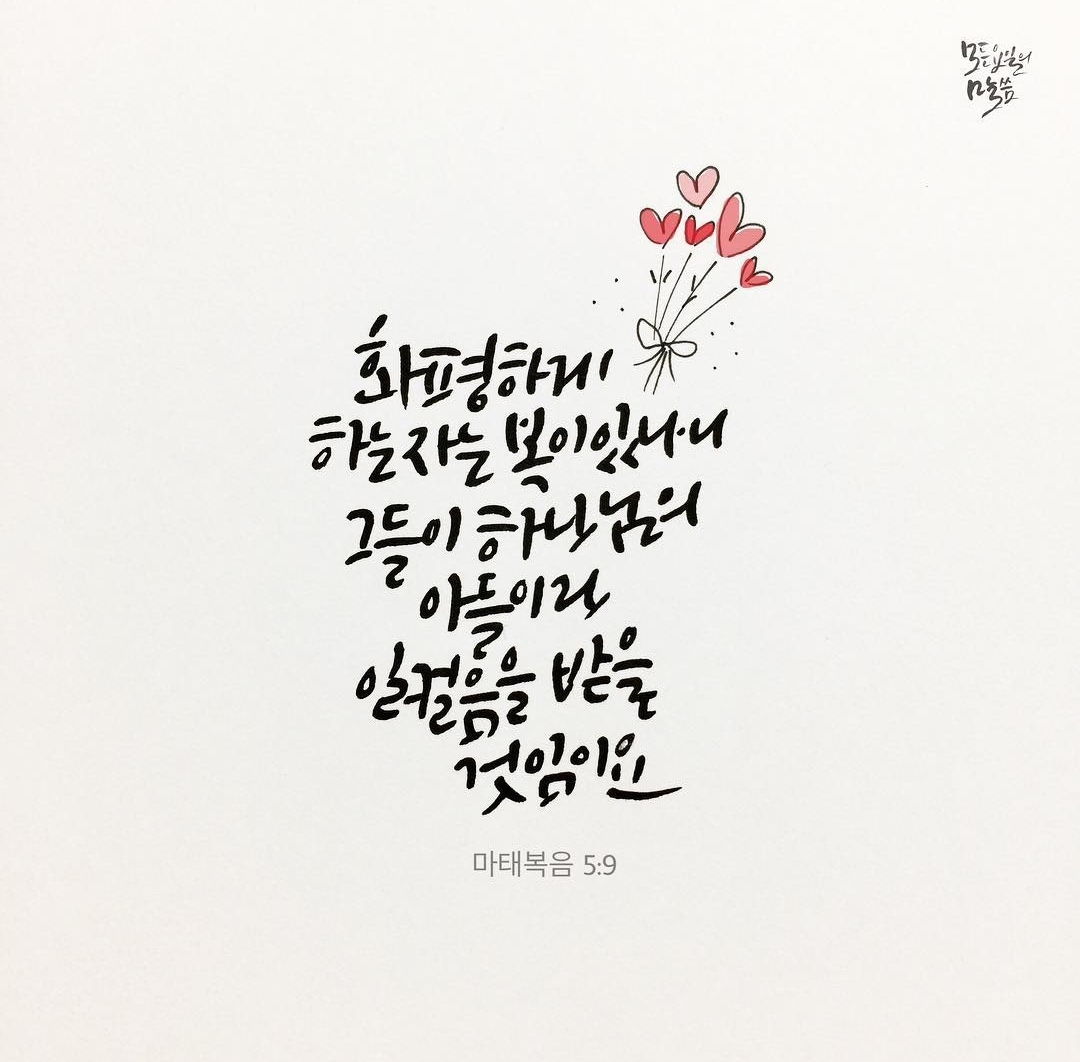 말씀
화평하게
하는 자는 복이 있나니
그들이 하나님의
아들이라
일컬음을 받을
것임이요
마태복음 5:9